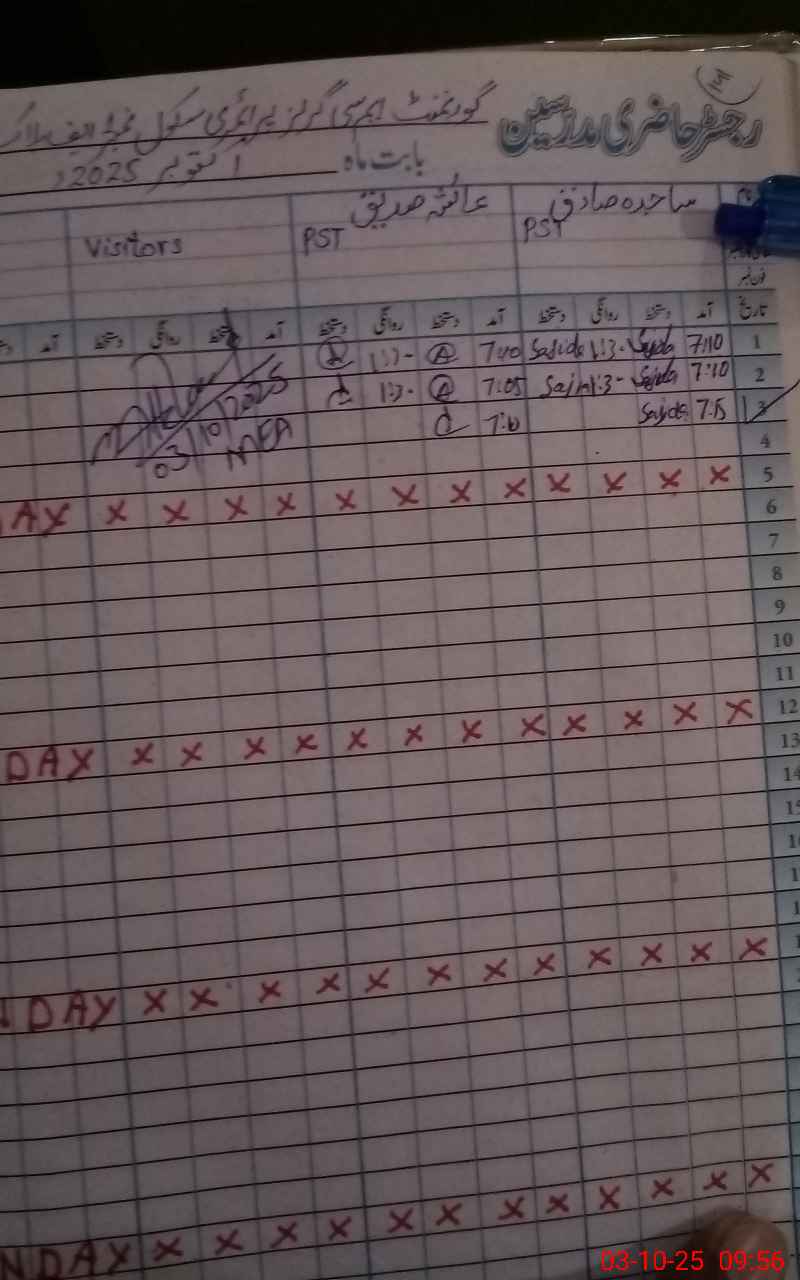 رجسٹر حاضری مدرسین
گورنمنٹ ایم سی گرلز پرائمری سکول
بابت ماہ اکتوبر 2025ء
ساجدہ صادق
PST
عائشہ صدیق
PST
Visitors
تاریخ آمد دستخط روانگی دستخط آمد دستخط روانگی دستخط آمد دستخط روانگی دستخط آمد
1 7:10 Sajida 1:3- Sajida 7:10 A
2 7:10 Sajida 1:3- 7:05 A 1:3-
3 7:15 Sajida
03/10/2025
MEA
4
5 X X X X X X X X X X X X DAY
6
7
8
9
10
11
12 X X X X X X X X X X X X DAY
13
14
X X X X X X X X X X X X DAY
X X X X X X X X X X X X NDAY
03-10-25 09:56